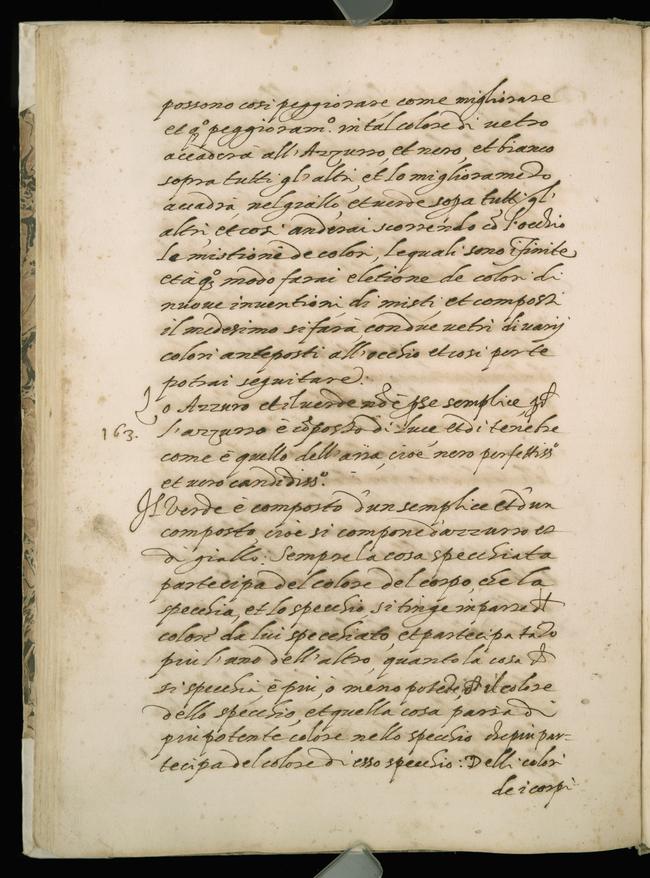 possono cosi peggiorare come migliorare
et q.º peggioram.º in tal colore di uetro
accaderà all'Azzurro, et nero, et bianco
sopra tutti gl'altri, et lo miglioramẽto
accadrà nel giallo, et uerde sopra tutti gl'
altri, et cosi anderai scorrendo cõ l'occhio
le mistione de colori, le quali sono ĩfinite
et à q.º modo farai eletione de colori di
nuoue inuentioni di misti, et composti
il medesimo si farà con due uetri di uarij
colori anteposti all'occhio et cosi per te
potrai seguitare.
Lo Azzuro et il uerde nõ è ꝑ se semplice
163.
l'azzurro è cõposto di luce et di tenebre
come è quello dell'aria, cioè nero perfettiss.º
et uero candidiss.º
Il Verde è composto d'un semplice et d'un
composto, cioè si compone d'azzurro et
di giallo: Sempre la cosa specchiata
partecipa del colore del corpo, che la
specchia, et lo specchio si tinge in parte d'l
colore da lui specchiato, et partecipa tãto
piu l'uno dell'altro, quanto la cosa
si specchia è piu, o meno potẽte, il colore
dello specchio, et quella cosa parrà di
piu potente colore nello specchio che piu par-
tecipa del colore di esso specchio: Delli colori
de i corpi